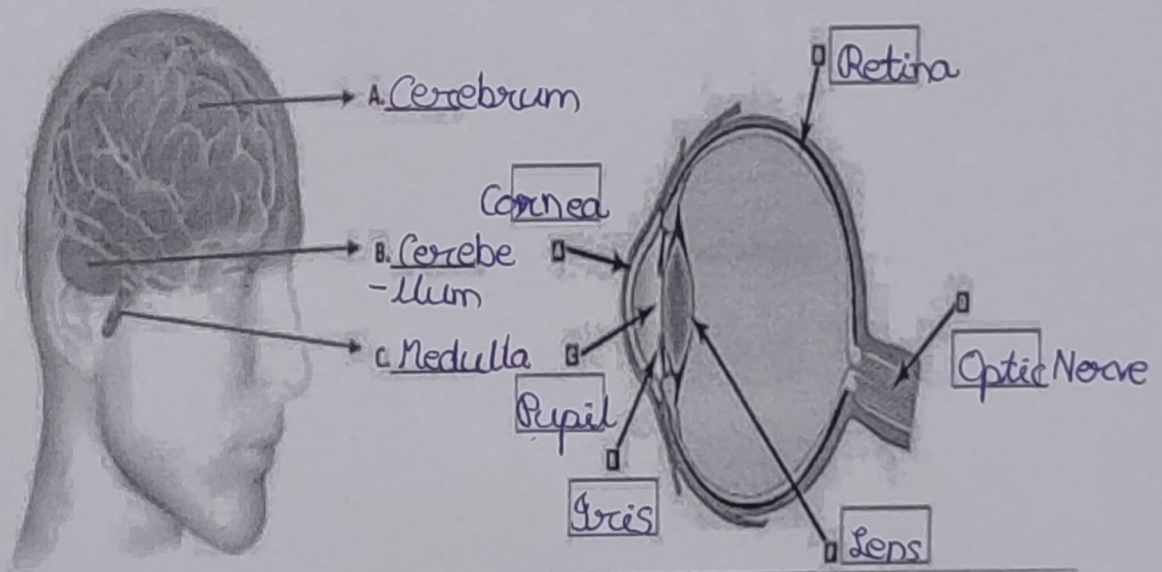 A. Cerebrum
B. Cerebe
-llum
C. Medulla
Retina
Cornea
Pupil
Iris
Optic Nerve
Lens